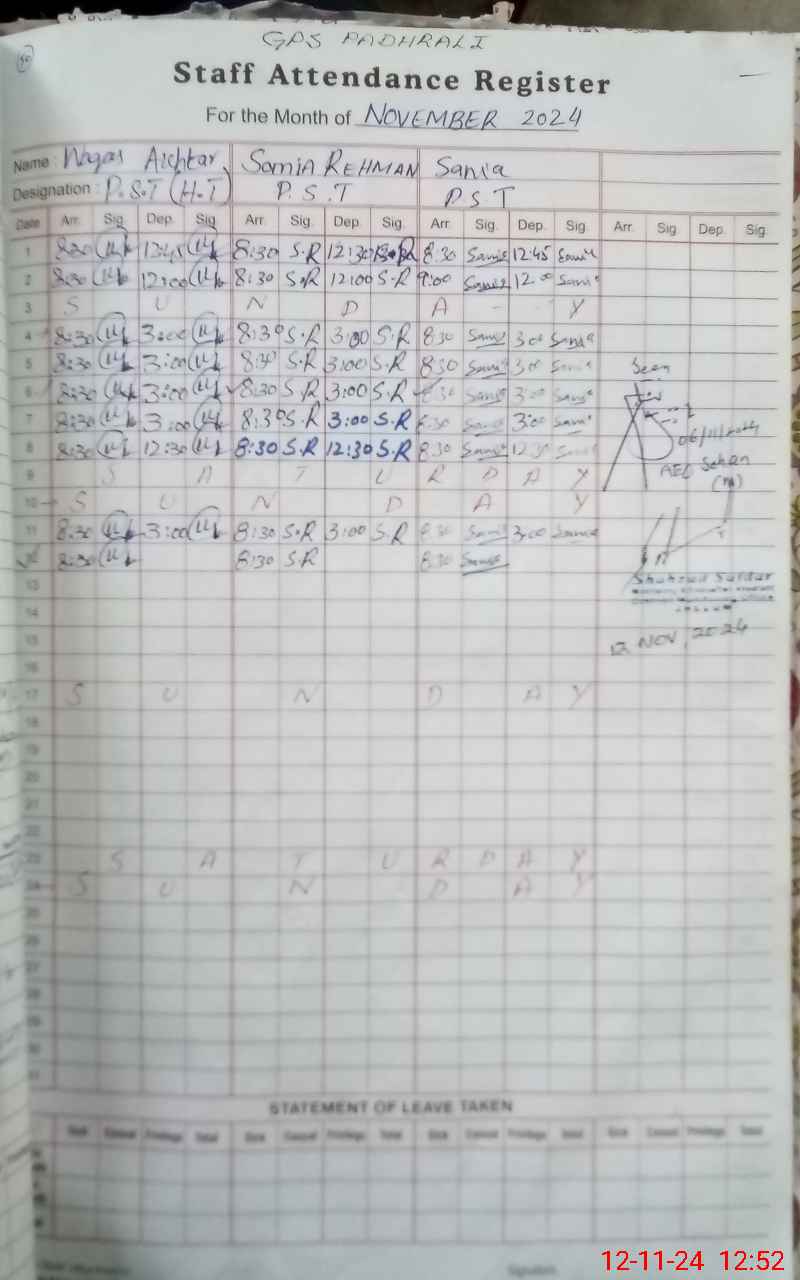 GPS PADHRALI
Staff Attendance Register
For the Month of NOVEMBER 2024
Name : Waqas Akhtar Samia REHMAN Sania
Designation : P.S.T (H.T) P.S.T PST
Date Arr. Sig. Dep. Sig. Arr. Sig. Dep. Sig. Arr. Sig. Dep. Sig. Arr. Sig. Dep. Sig.
1 8:30 12:45 8:30 S.R 12:30 S.R 8:30 Sania 12:45 Sania
2 8:30 12:00 8:30 S.R 12:00 S.R 9:00 Sania 12:00 Sania
3 S U N D A Y
4 8:30 3:00 8:30 S.R 3:00 S.R 8:30 Sania 3:00 Sania
5 8:30 3:00 8:30 S.R 3:00 S.R 8:30 Sania 3:00 Sania
Seen
6 8:30 3:00 8:30 S.R 3:00 S.R 8:30 Sania 3:00 Sania
7 8:30 3:00 8:30 S.R 3:00 S.R 8:30 Sania 3:00 Sania
06/11/2024
8 8:30 12:30 8:30 S.R 12:30 S.R 8:30 Sania 12:30 Sania
AEO
(M)
9 S A T U R D A Y
10 S U N D A Y
11 8:30 3:00 8:30 S.R 3:00 S.R 8:30 Sania 3:00 Sania
12 8:30 8:30 S.R 8:30 Sania
13
14
15
12 NOV 2024
16
17 S U N D A Y
18
19
20
21
22
23 S A T U R D A Y
24 S U N D A Y
25
26
27
28
29
30
31
STATEMENT OF LEAVE TAKEN
Sick Casual Privilege Total Sick Casual Privilege Total Sick Casual Privilege Total Sick Casual Privilege Total
12-11-24 12:52